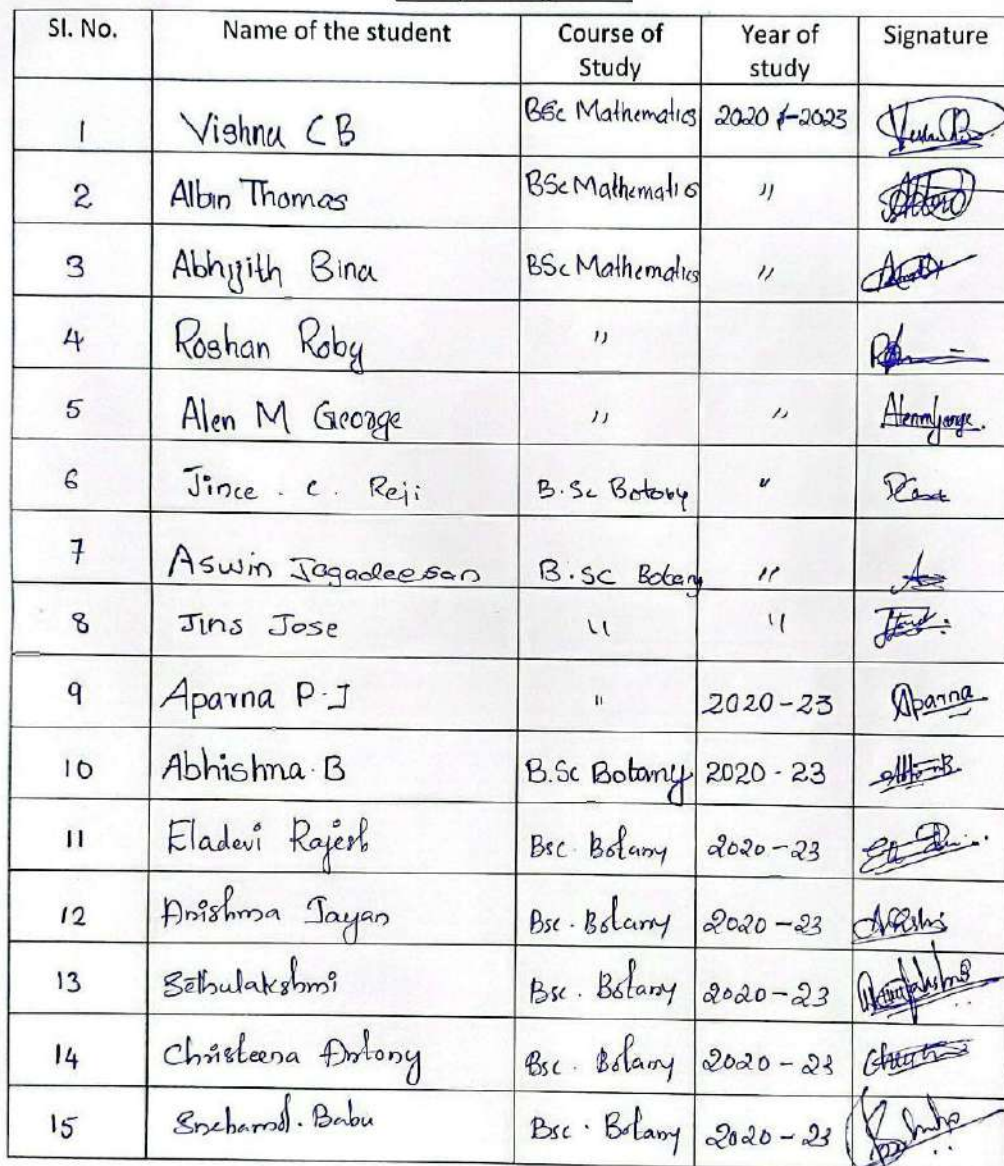 Sl. No. Name of the student Course of Study Year of study Signature
1 Vishnu C B BSc Mathematics 2020 -2023
2 Albin Thomas BSc Mathematics "
3 Abhijith Bina BSc Mathematics "
4 Roshan Roby "
5 Alen M George " " Alenmgeorge.
6 Jince . C. Reji B.Sc Botony "
7 Aswin Jagadeesan B.SC Botany "
8 Jins Jose " "
9 Aparna P.J " 2020-23 Aparna
10 Abhishna.B B.Sc Botany 2020-23
11 Eladevi Rajesh Bsc. Botany 2020-23
12 Anishma Jayan Bsc. Botany 2020-23
13 Sethulakshmi Bsc. Botany 2020-23
14 Christeena Antony Bsc. Botany 2020-23
15 Babu Bsc. Botany 2020-23